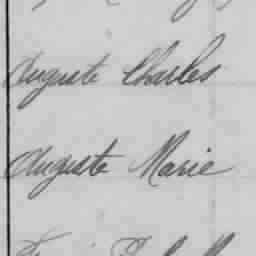 Auguste Charles
Auguste Marie